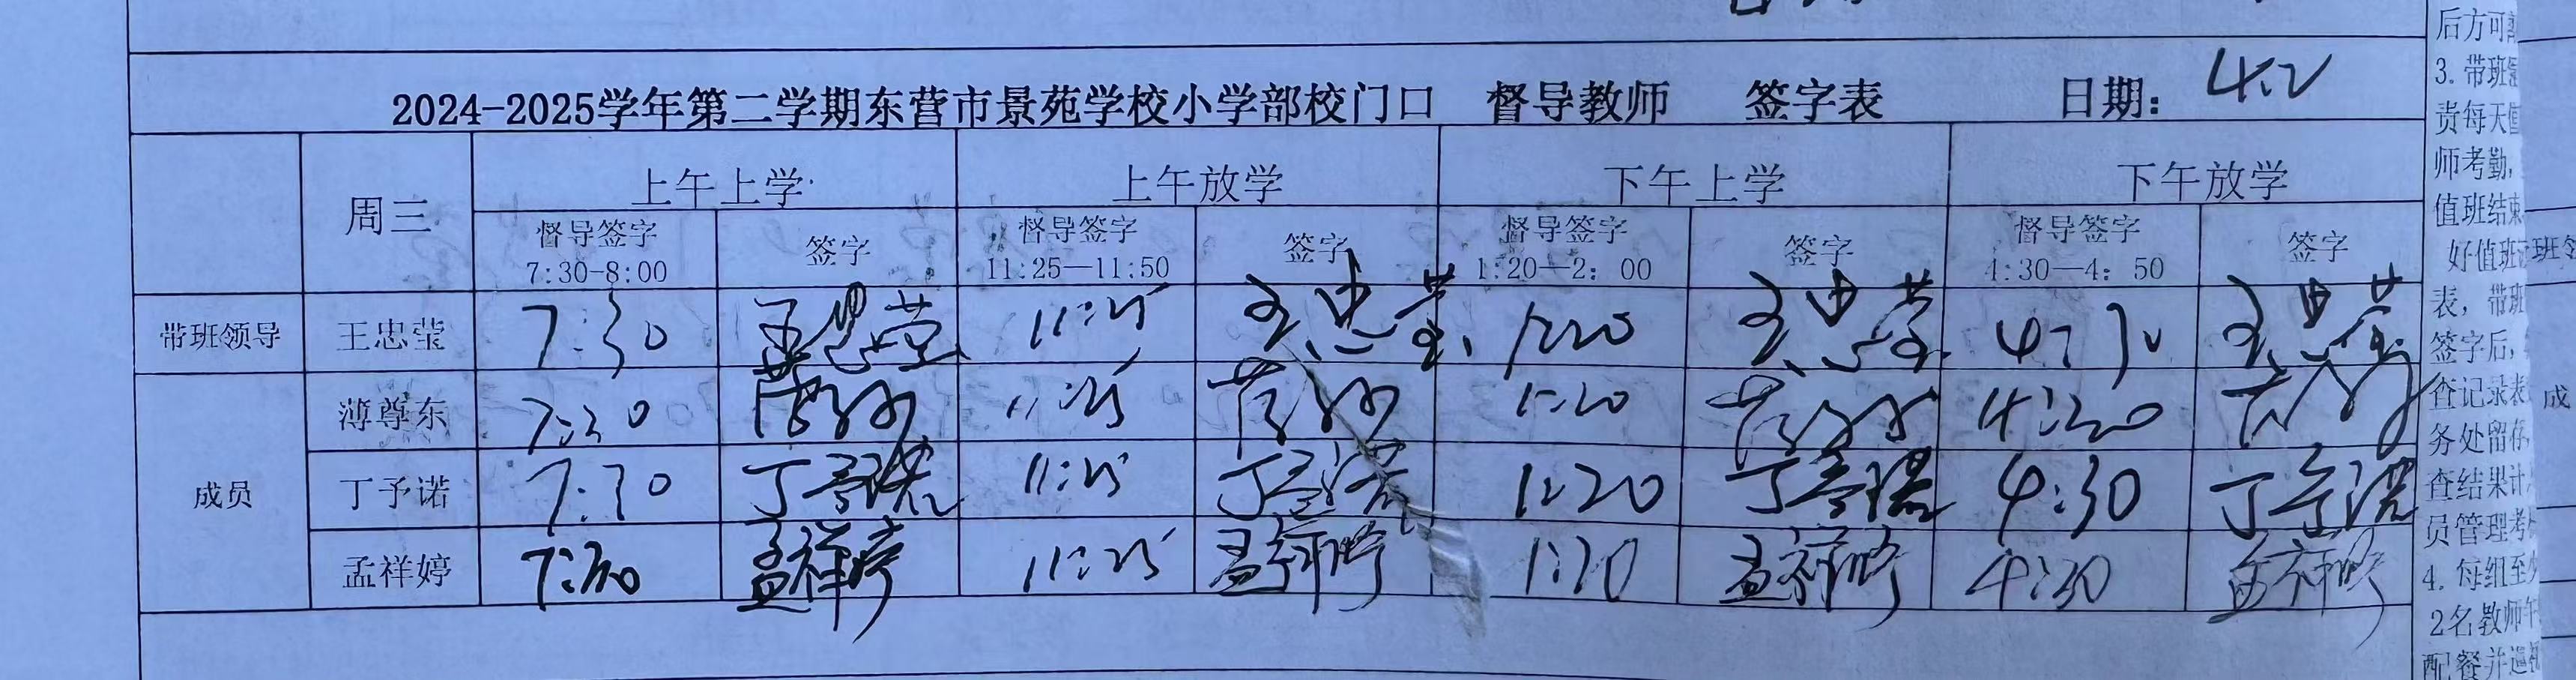 2024-2025学年第二学期东营市景苑学校小学部校门口 督导教师 签字表 日期: 4.2
周三 上午上学 上午放学 下午上学 下午放学
督导签字 7:30-8:00 签字 督导签字 11:25—11:50 签字 督导签字 1:20—2:00 签字 督导签字 4:30—4:50 签字
带班领导 王忠莹 7:30 王忠莹 11:25 王忠莹 1:20 王忠莹 4:30 王忠莹
成员 薄尊东 7:30 11:25 1:20
丁予诺 7:30 丁予诺 11:25 丁予诺 1:20 丁予诺 4:30 丁予诺
孟祥婷 7:30 孟祥婷 11:25 孟祥婷 1:20 孟祥婷 4:30 孟祥婷
后方可
3. 带班
责每天
师考勤,
值班结束
好值班
表, 带班
签字后,
查记录表
务处留存,
查结果计
员管理考
4. 每组至少
2名教师午
配餐并巡视
班领
成